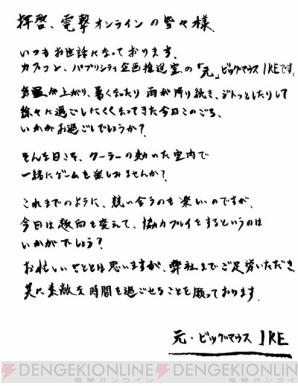 拝啓、電撃オンラインの皆々様
いつもお世話になっております、
カプコン、パブリシティ企画推進室の「元」ビッグマウス IREです。
気温が上がり、暑くなったり 雨が降り続き、ジトっとしたりして
徐々に過ごしにくくなってきた今日このごろ、
いかがお過ごしでしょうか?
そんな日こそ、クーラーの効いた室内で
一緒にゲームを楽しみませんか?
これまでのように、競い合うのも楽しいのですが、
今日は趣向を変えて、協力プレイをするというのは
いかがでしょう?
お忙しいこととは思いますが、弊社までご足労いただき、
共に素敵な時間を過ごせることを願っております。
元・ビッグマウス IRE
DENGEKIONLINE